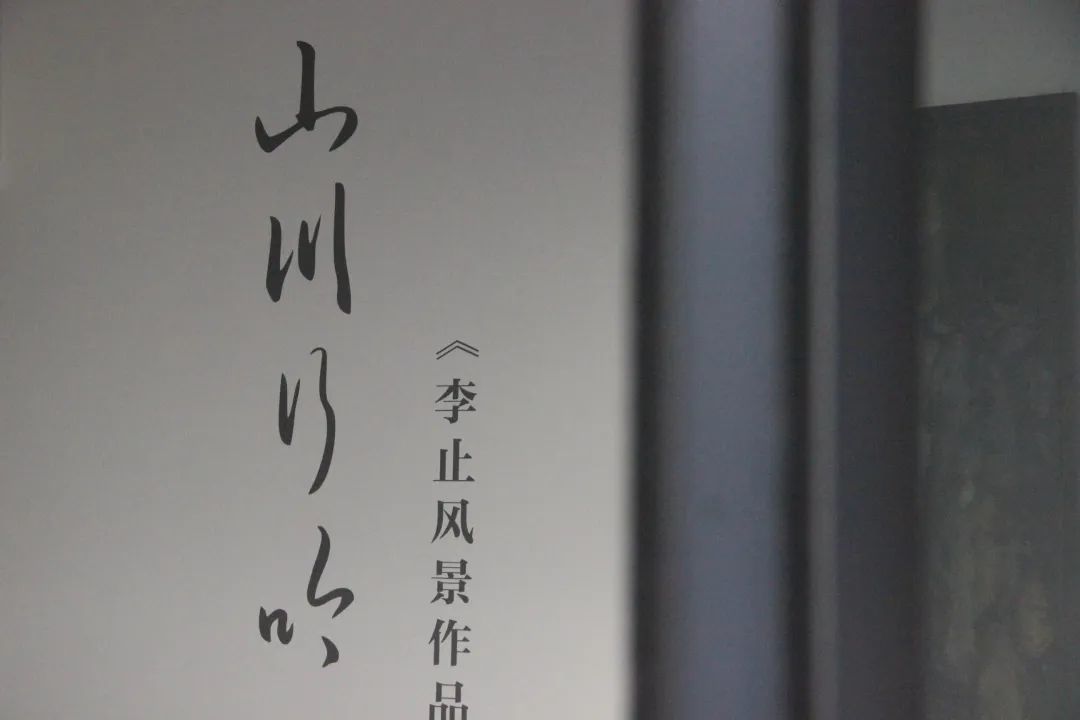 山川行吟
《李止风景作品